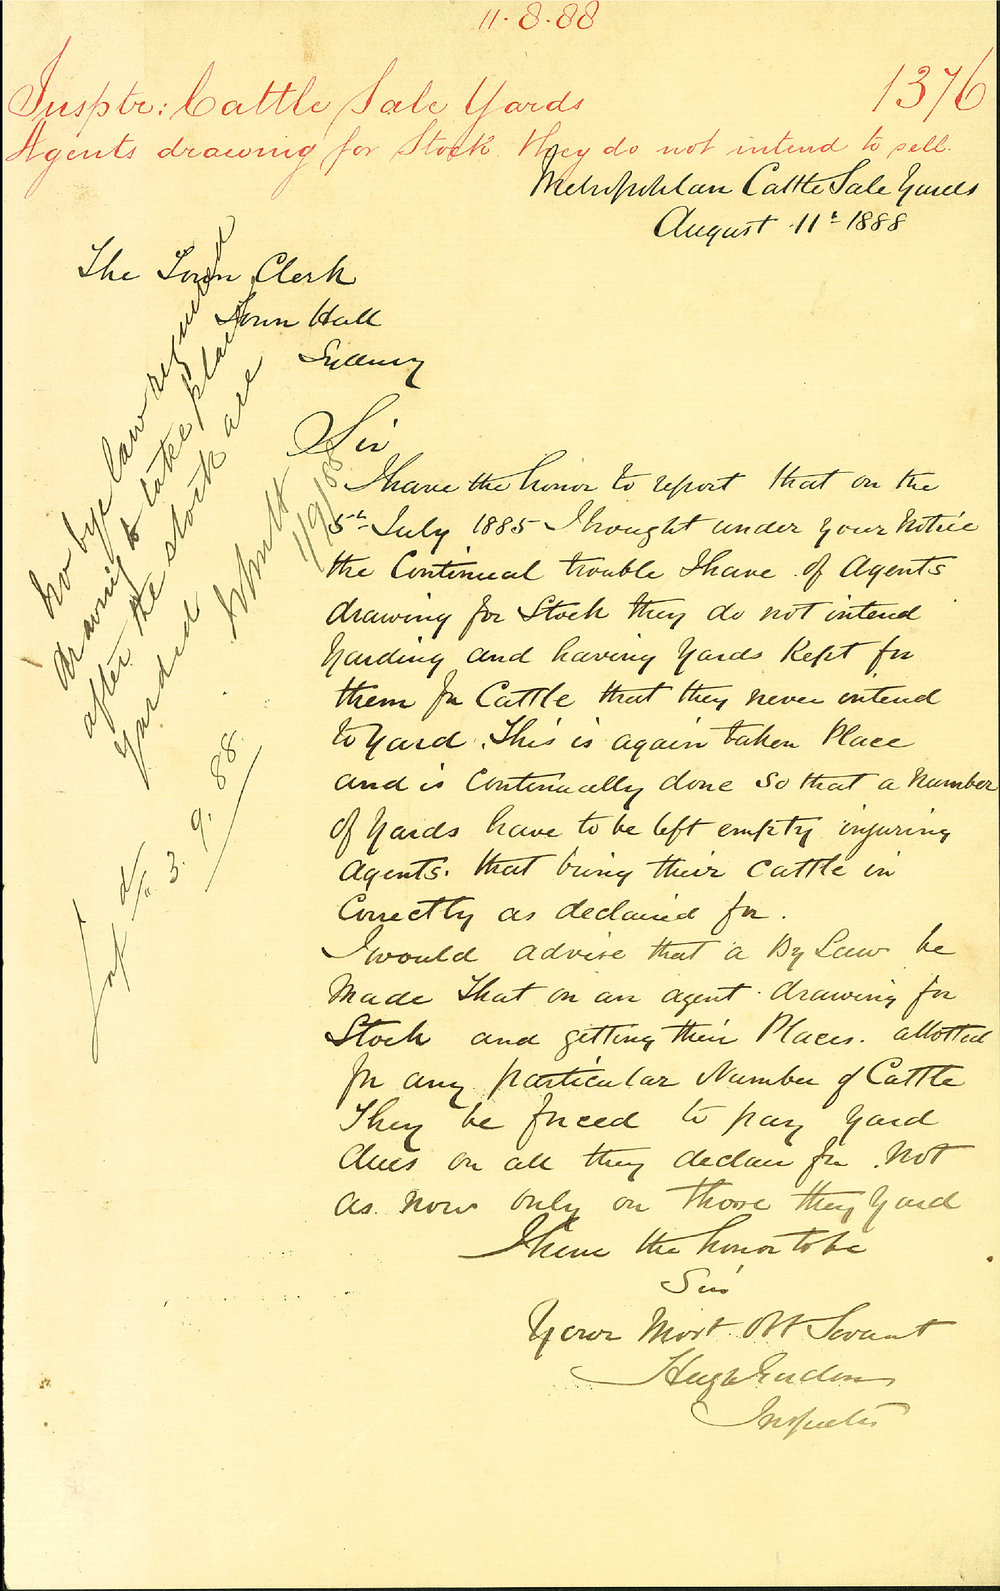 11.8.88
Insptr: Cattle Sale Yards
1376
Agents drawing for Stock they do not intend to sell.
Metropolitan Cattle Sale Yards
August 11th 1888
The Town Clerk
Town Hall
Sydney
Sir
I have the honor to report that on the
5th July 1885 I brought under your Notice
the Continual trouble I have of Agents
drawing for Stock they do not intend
Yarding and having Yards Kept for
them for Cattle that they never intend
to Yard. This is again taken Place
and is Continually done So that a Number
of Yards have to be left empty injuring
Agents. that bring their Cattle in
Correctly as declaired for.
I would advise that a By Law be
Made That on an agent drawing for
Stock and getting their Places. allotted
for any particular Number of Cattle
They be forced to pay Yard
dues on all they declair for. Not
as now only on those they Yard
I have the honor to be
Sir
Your Most Obt Servant
Inspector
No bye law required
drawing to take place
after the stock are
yarded
1/9/88
3.9.88